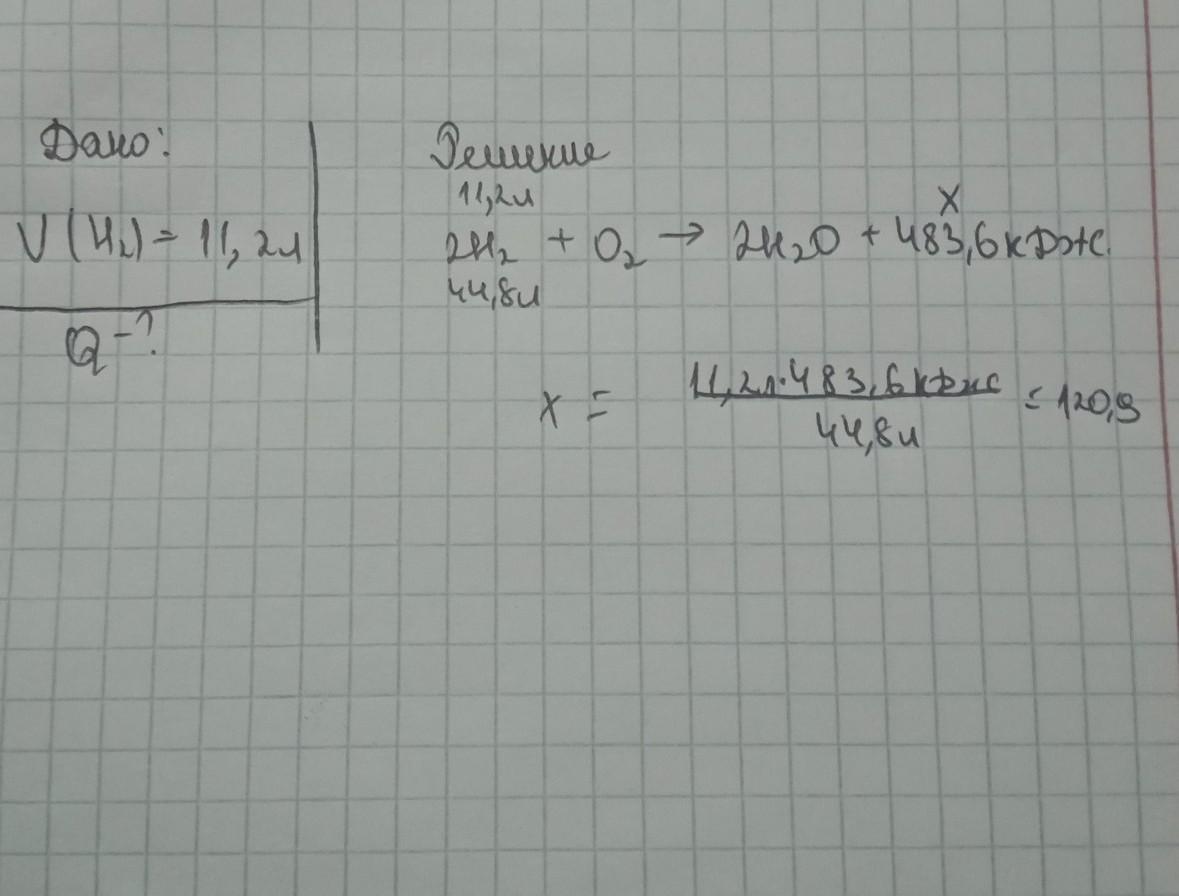 Дано:
V(H₂) = 11,2л
Q - ?
Решение
11,2л
x
2H₂ + O₂ → 2H₂O + 483,6кДж
44,8л
x = 11,2л·483,6кДж / 44,8л = 120,9